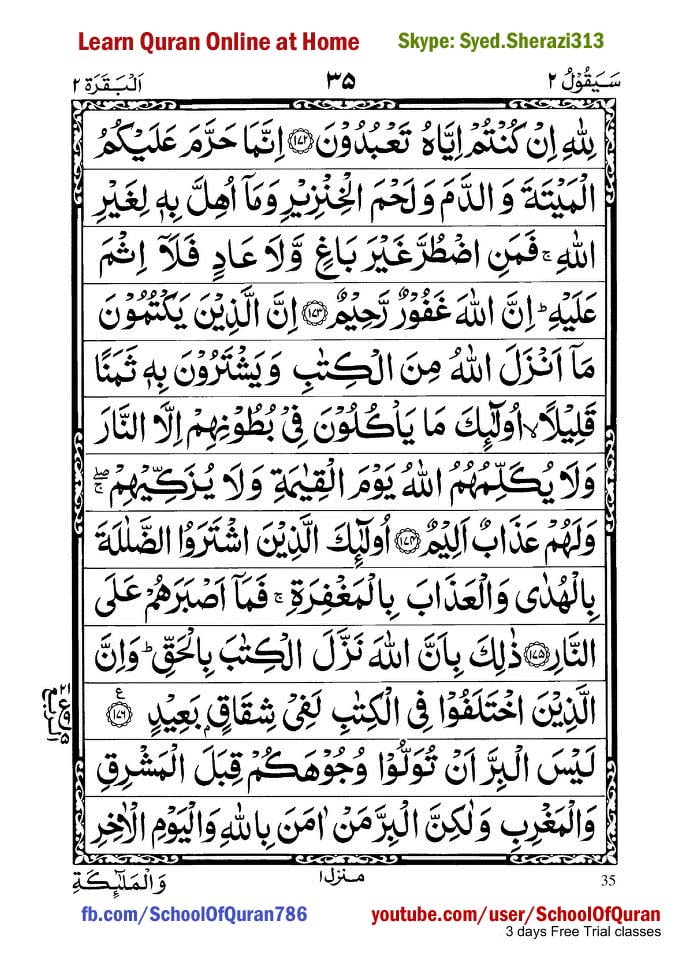 Learn Quran Online at Home
Skype: Syed.Sherazi313
سَيَقُوْلُ ٢
٣٥
اَلْبَقَرَة ٢
لِلّٰهِ اِنْ كُنْتُمْ اِيَّاهُ تَعْبُدُوْنَ ۝١٧٢ اِنَّمَا حَرَّمَ عَلَيْكُمُ
الْمَيْتَةَ وَ الدَّمَ وَ لَحْمَ الْخِنْزِيْرِ وَمَاۤ اُهِلَّ بِهٖ لِغَيْرِ
اللّٰهِ ۚ فَمَنِ اضْطُرَّ غَيْرَ بَاغٍ وَّلَا عَادٍ فَلَاۤ اِثْمَ
عَلَيْهِ ؕ اِنَّ اللّٰهَ غَفُوْرٌ رَّحِيْمٌ ۝١٧٣ اِنَّ الَّذِيْنَ يَكْتُمُوْنَ
مَاۤ اَنْزَلَ اللّٰهُ مِنَ الْكِتٰبِ وَيَشْتَرُوْنَ بِهٖ ثَمَنًا
قَلِيْلًا ۙ اُولٰٓئِكَ مَا يَاْكُلُوْنَ فِيْ بُطُوْنِهِمْ اِلَّا النَّارَ
وَلَا يُكَلِّمُهُمُ اللّٰهُ يَوْمَ الْقِيٰمَةِ وَلَا يُزَكِّيْهِمْ ۖۚ
وَلَهُمْ عَذَابٌ اَلِيْمٌ ۝١٧٤ اُولٰٓئِكَ الَّذِيْنَ اشْتَرَوُا الضَّلٰلَةَ
بِالْهُدٰى وَالْعَذَابَ بِالْمَغْفِرَةِ ۚ فَمَاۤ اَصْبَرَهُمْ عَلَى
النَّارِ ۝١٧٥ ذٰلِكَ بِاَنَّ اللّٰهَ نَزَّلَ الْكِتٰبَ بِالْحَقِّ ؕ وَاِنَّ
الَّذِيْنَ اخْتَلَفُوْا فِي الْكِتٰبِ لَفِيْ شِقَاقٍۭ بَعِيْدٍ ۝١٧٦ ع
لَيْسَ الْبِرَّ اَنْ تُوَلُّوْا وُجُوْهَكُمْ قِبَلَ الْمَشْرِقِ
وَالْمَغْرِبِ وَلٰكِنَّ الْبِرَّ مَنْ اٰمَنَ بِاللّٰهِ وَالْيَوْمِ الْاٰخِرِ
35
منزل ١
وَالْمَلٰٓئِكَةِ
fb.com/SchoolOfQuran786
youtube.com/user/SchoolOfQuran
3 days Free Trial classes